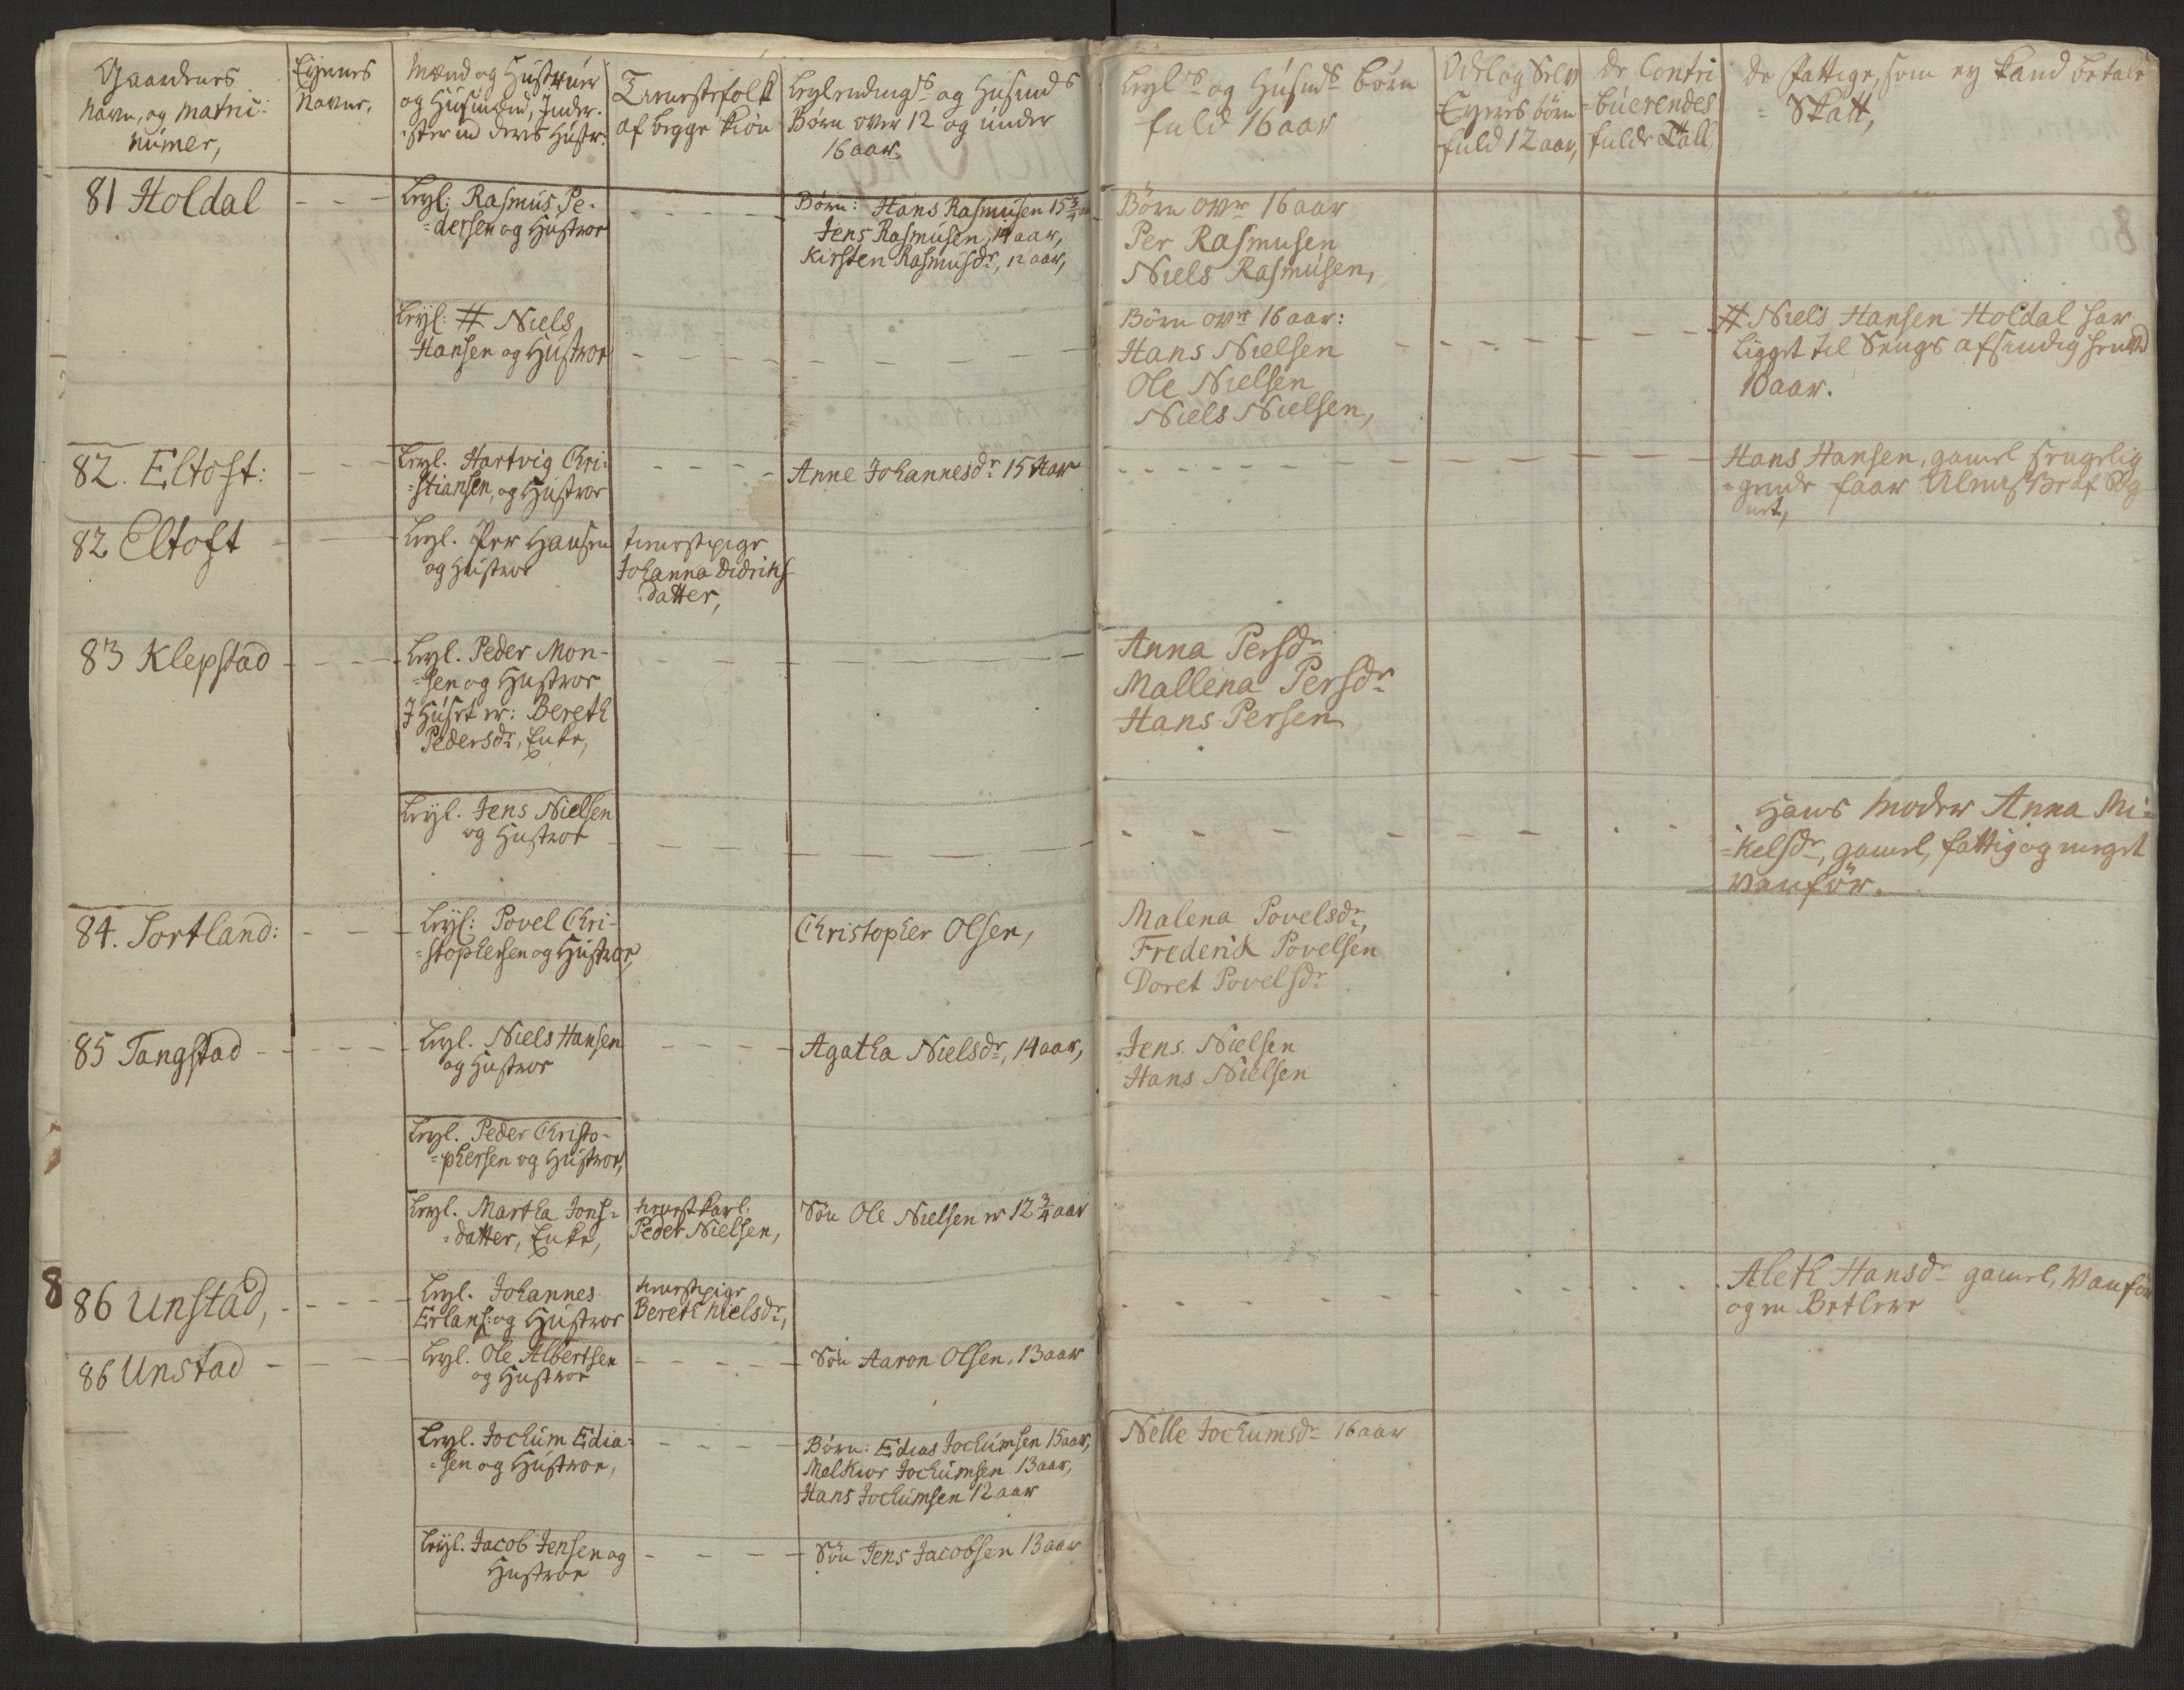 Gaardenes
Navn, og matric:
numer,
Eyernes
Navne,
Mænd og Hustruer
og Husmænd, Inder-
ster med deres Hustr:
Tienestefolk
af begge kiön
Leylendings og Husmds
Börn over 12 og under
16 aar,
Leylds og Husmds börn
fuld 16 aar
Odel og Selv
Eyeres börn
fuld 12 aar,
De Contri
=buerendes
fulde Tall,
De fattige, som ey kand betale
= Skatt,
81 Holdal
Leyl: Rasmus Pe-
=dersen og Hustroe
Börn: Hans Rasmusen 15¾ aar
Jens Rasmusen, 14 aar,
Kirsten Rasmusdr, 12 aar,
Börn over 16 aar
Per Rasmusen
Niels Rasmusen,
Leyl: # Niels
Hansen og Hustroe
Börn over 16 aar:
Hans Nielsen
Ole Nielsen
Niels Nielsen,
# Niels Hansen Holdal har
ligget til Sengs afsindig henved
10 aar.
82. Eltoft:
Leyl. Hartvig Chri-
=stiansen, og Hustroe
Anne Johannesdr 15 aar
Hans Hansen, gamel sengelig
=gende faar Almisse af Sog
net,
82 Eltoft
Leyl. Per Hansen
og Hustroe
tienestepige
Johanna Didriks
datter,
83 Klepstad
Leyl. Peder Mon-
=sen og Hustroe
I Huset er: Bereth
Pedersdr, Enke,
Anna Persdr
Mallena Persdr
Hans Persen
Leyl. Jens Nielsen
og Hustroe
Hans Moder Anna Mi=
=kelsdr, gamel, fattig og meget
Vanför.
84. Sortland:
Leyl: Povel Chri-
=stophersen og Hustroe,
Christopher Olsen,
Malena Povelsdr,
Frederik Povelsen
Doret Povelsdr
85 Tangstad
Leyl. Niels Hansen
og Hustroe
Agatha Nielsdr, 14 aar,
Jens Nielsen
Hans Nielsen
Leyl. Peder Christo-
=phersen og Hustroe,
Leyl. Martha Jons=
=datter, Enke,
tienestkarl:
Peder Nielsen,
Sön Ole Nielsen er 12¾ aar
86 Unstad,
Leyl. Johannes
Erlans: og Hustroe
tienestpige
Bereth Nielsdr,
Aleth Hansdr gamel, Vanför
og en Betlere
86 Unstad
Leyl. Ole Albertsen
og Hustroe
Sön Aaron Olsen, 13 aar
Leyl. Jochum Edia-
=sen og Hustroe,
Börn: Edias Jochumsen 15 aar,
Melkior Jochumsen 13 aar,
Hans Jochumsen 12 aar
Nelle Jochumsdr 16 aar
Leyl. Jacob Jensen og
Hustroe
Sön Jens Jacobsen 13 aar